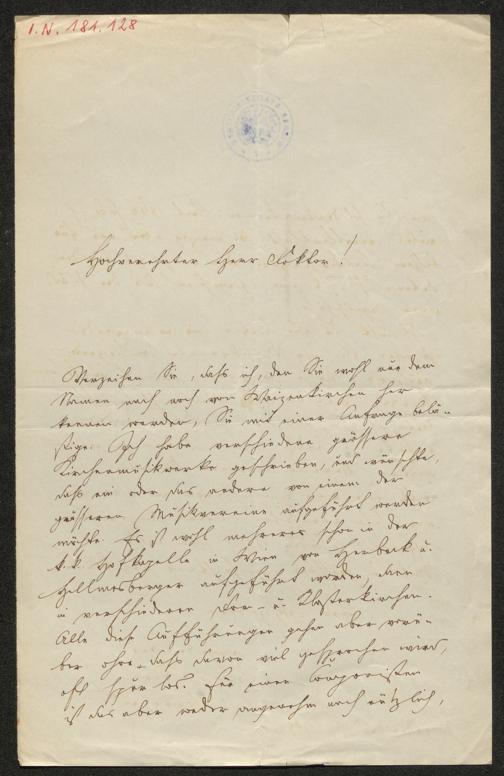 I.N. 181.128
Hochverehrter Herr Doktor!
Verzeihen Sie, daß ich, den Sie wohl nur dem
Namen nach noch von Waizenkirchen her
kennen werden, Sie mit einer Anfrage belä-
stige. Ich habe verschiedene grössere
Kirchenmusikwerke geschrieben, und wünschte,
daß ein oder das andere von einem der
grösseren Musikvereine aufgeführt werden
möchte. Es ist wohl mehreres schon in der
k.k. Hofkapelle in Wien von Herbeck u.
Hellmesberger aufgeführt worden, dann
in verschiedenen Dom- u. Klosterkirchen.
Alle diese Aufführungen gehen aber vorü-
ber ohne daß davon viel gesprochen wird,
oft spurlos. Für einen Componisten
ist das aber weder angenehm noch nützlich,